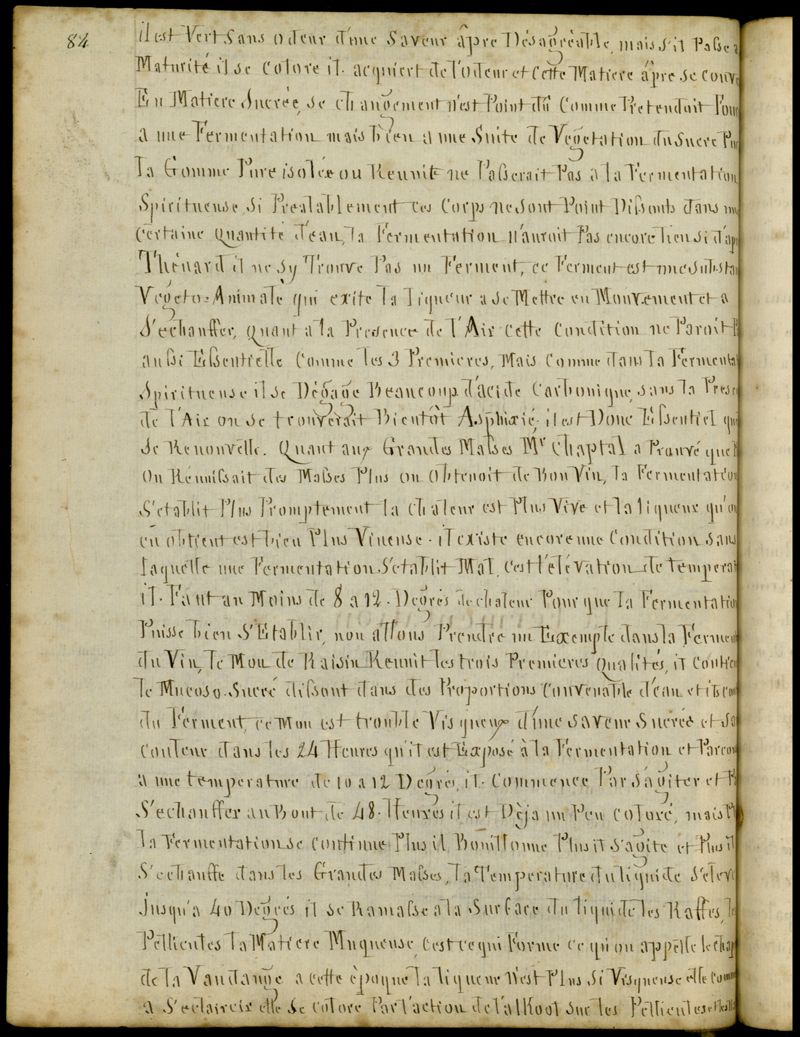 84
il est Vert Sans odeur d'une Saveur âpre Désagréable, mais s'il Passe a
Maturité il se Colore il acquiert de l'odeur et Cette Matiere âpre se Conve
En Matiere Sucrée, Se Changement n'est Point dû Comme Pretendait Four
a une Fermentation mais bien a une Suite de Vegetation du Sucre Pur
la Gomme Pure isolée ou Reunit ne Passerait Pas a la Fermentation
Spirituense Si Prealablement ces Corps ne sont Point Dissouts dans un
Certaine Quantité d'eau, la Fermentation n'auroit Pas encore lieu si d'apr
Thénard il ne s'y Trouve Pas un Ferment, ce Ferment est une Substan
Végéto-Animale qui exite la liqueur a se Mettre en Mouvement et a
S'echauffer, Quant a la Presence de l'Air Cette Condition ne Paroit P
aussi Essentielle Comme les 3 Premieres, Mais Comme dans la Fermenta
Spirituense il se Dégage Beaucoup d'acide Carbonique, sans la Prese
de l'Air on se trouverait Bientôt Asphixié. il est Donc Essentiel qu'i
Se Renouvelle. Quant aux Grandes Masses Mr Chaptal a Prouvé que P
On Reunissait des Masses Plus on Obtenoit de Bon Vin, la Fermentation
S'etablit Plus Promptement la chaleur est Plus Vive et la liqueur qu'on
en obtient est bien Plus Vineuse. il existe encore une Condition Sans
laquelle une Fermentation S'etablit Mal, C'est l'elévation de temperat
il Faut au Moins de 8 a 12 Degrés de chaleur Pour que la Fermentation
Puisse bien S'Etablir, nou allons Prendre un Exemple dans la Ferment
du Vin, le Mou de Raisin Reunit les trois Premieres Qualités, il Contien
le Mucoso-Sucré dissout dans des Proportions Convenable d'eau et il con
du Ferment, ce Mou est trouble Visqueux d'une saveur Sucrée et Sa
Couleur dans les 24 Heures qu'il est Exposé à la Fermentation et Par con
a une temperature de 10 a 12 Degrés, il Commence Par S'agiter et P
S'echauffer au Bout de 48 Heures il est Déja un Peu coloré, mais Pl
la Fermentation se Continue Plus il Bouillonne Plus il S'agite et Plus il
S'echauffe dans les Grandes Masses, la Temperature du liquide S'eleve
Jusqu'a 40 Degrés il se Ramasse a la Surface du liquide les Raffes, le
Pellicules la Matiere Muqueuse, C'est ce qui Forme ce qu'on appelle le chap
de la Vandange a cette époque la liqueur N'est Plus Si Visqueuse elle Comm
a S'eclaircir elle Se colore Par l'action de l'alkool sur les Pellicules